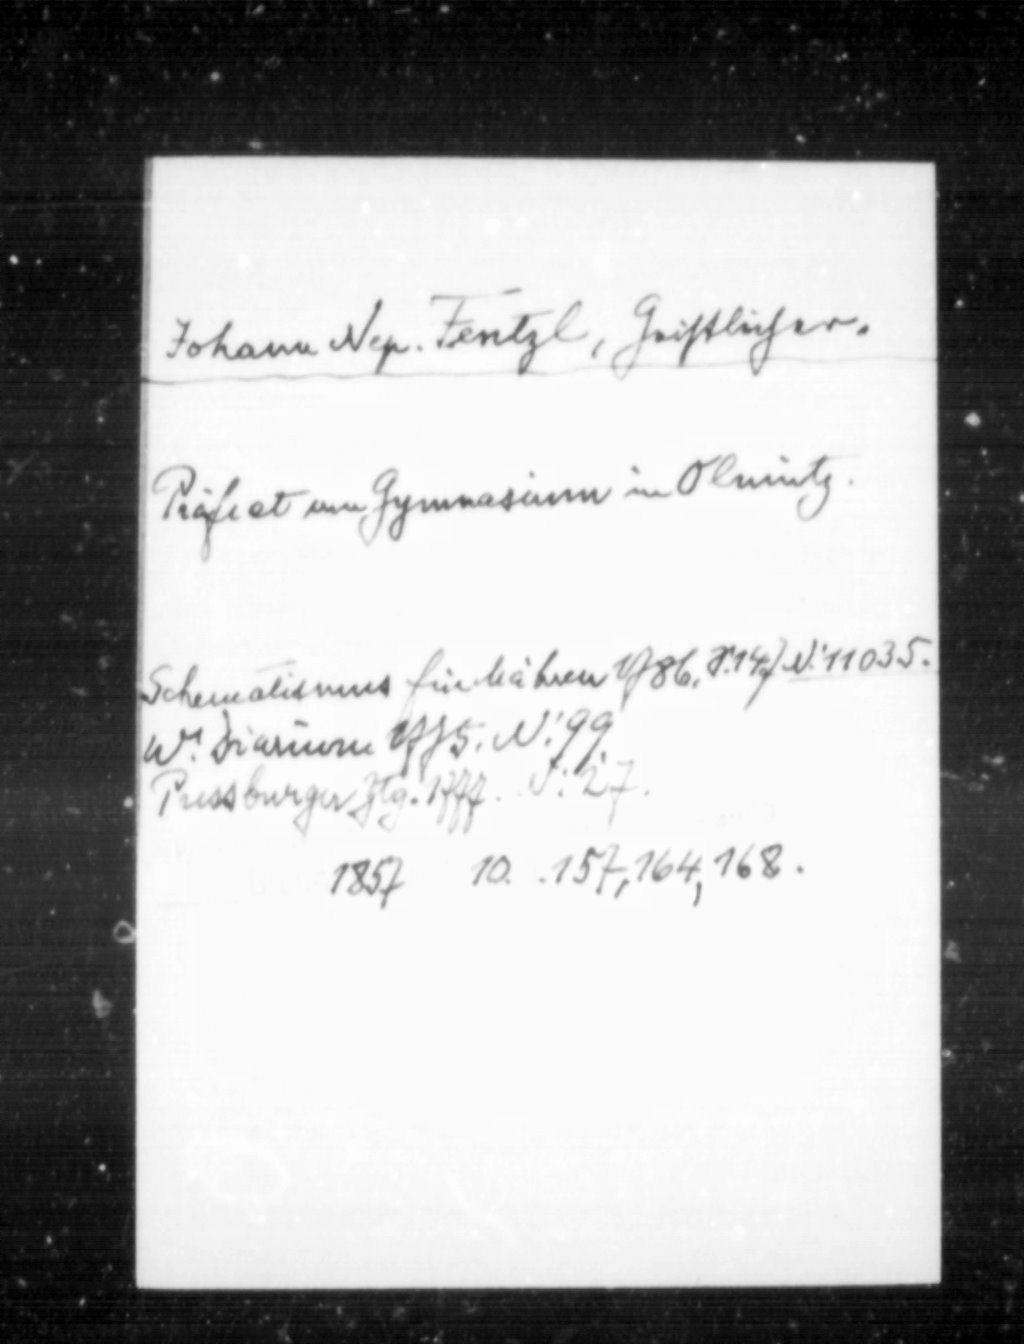 Johann Nep. Fentzl, Geistlicher.
Präfect am Gymnasium in Olmütz.
Schematismus für Mähren 1786. S. 147 N: 11035.
Wr. Diarium 1775. N: 99.
Pressburger Ztg. 1777. S: 27.
1857 10. 157, 164, 168.